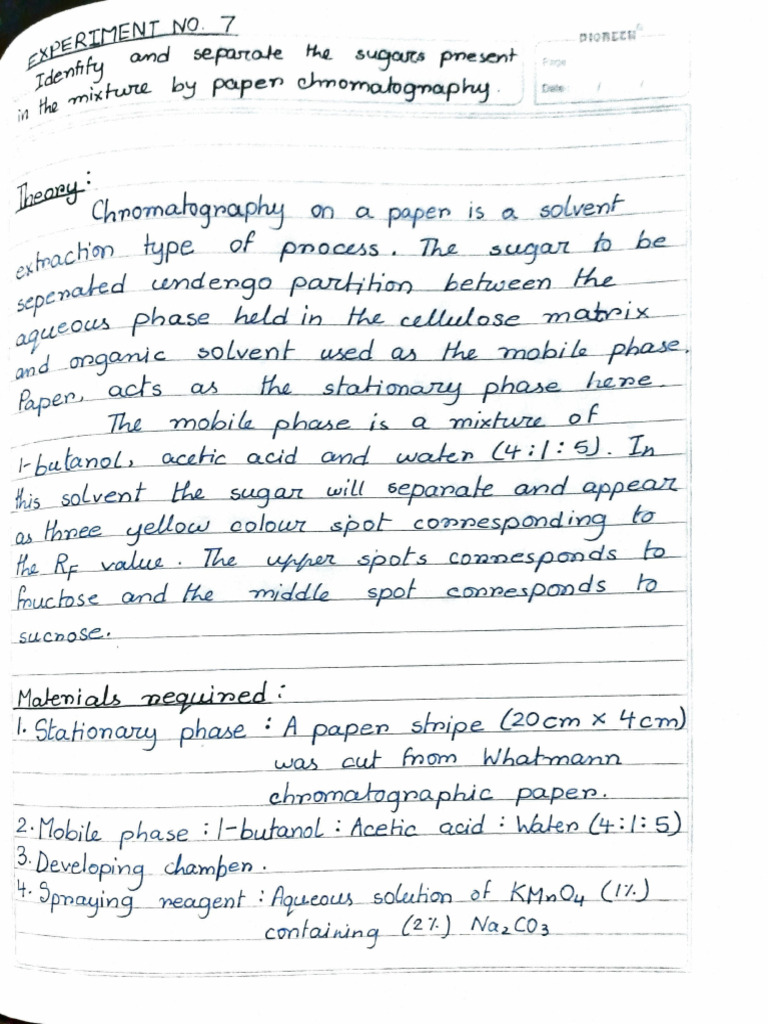 EXPERIMENT NO. 7
Identify and separate the sugars present
in the mixture by paper chromatography.
PIONEER
Page
Date / /
Theory:
Chromatography on a paper is a solvent
extraction type of process. The sugar to be
seperated undergo partition between the
aqueous phase held in the cellulose matrix
and organic solvent used as the mobile phase.
Paper, acts as the stationary phase here.
The mobile phase is a mixture of
1-butanol, acetic acid and water (4:1:5). In
this solvent the sugar will separate and appear
as three yellow colour spot corresponding to
the RF value. The upper spots corresponds to
fructose and the middle spot corresponds to
sucrose.
Materials required:
1. Stationary phase : A paper stripe (20cm x 4cm)
was cut from Whatmann
chromatographic paper.
2. Mobile phase : 1-butanol : Acetic acid : Water (4:1:5)
3. Developing chamber.
4. Spraying reagent : Aqueous solution of KMnO4 (1%)
containing (2%) Na2CO3